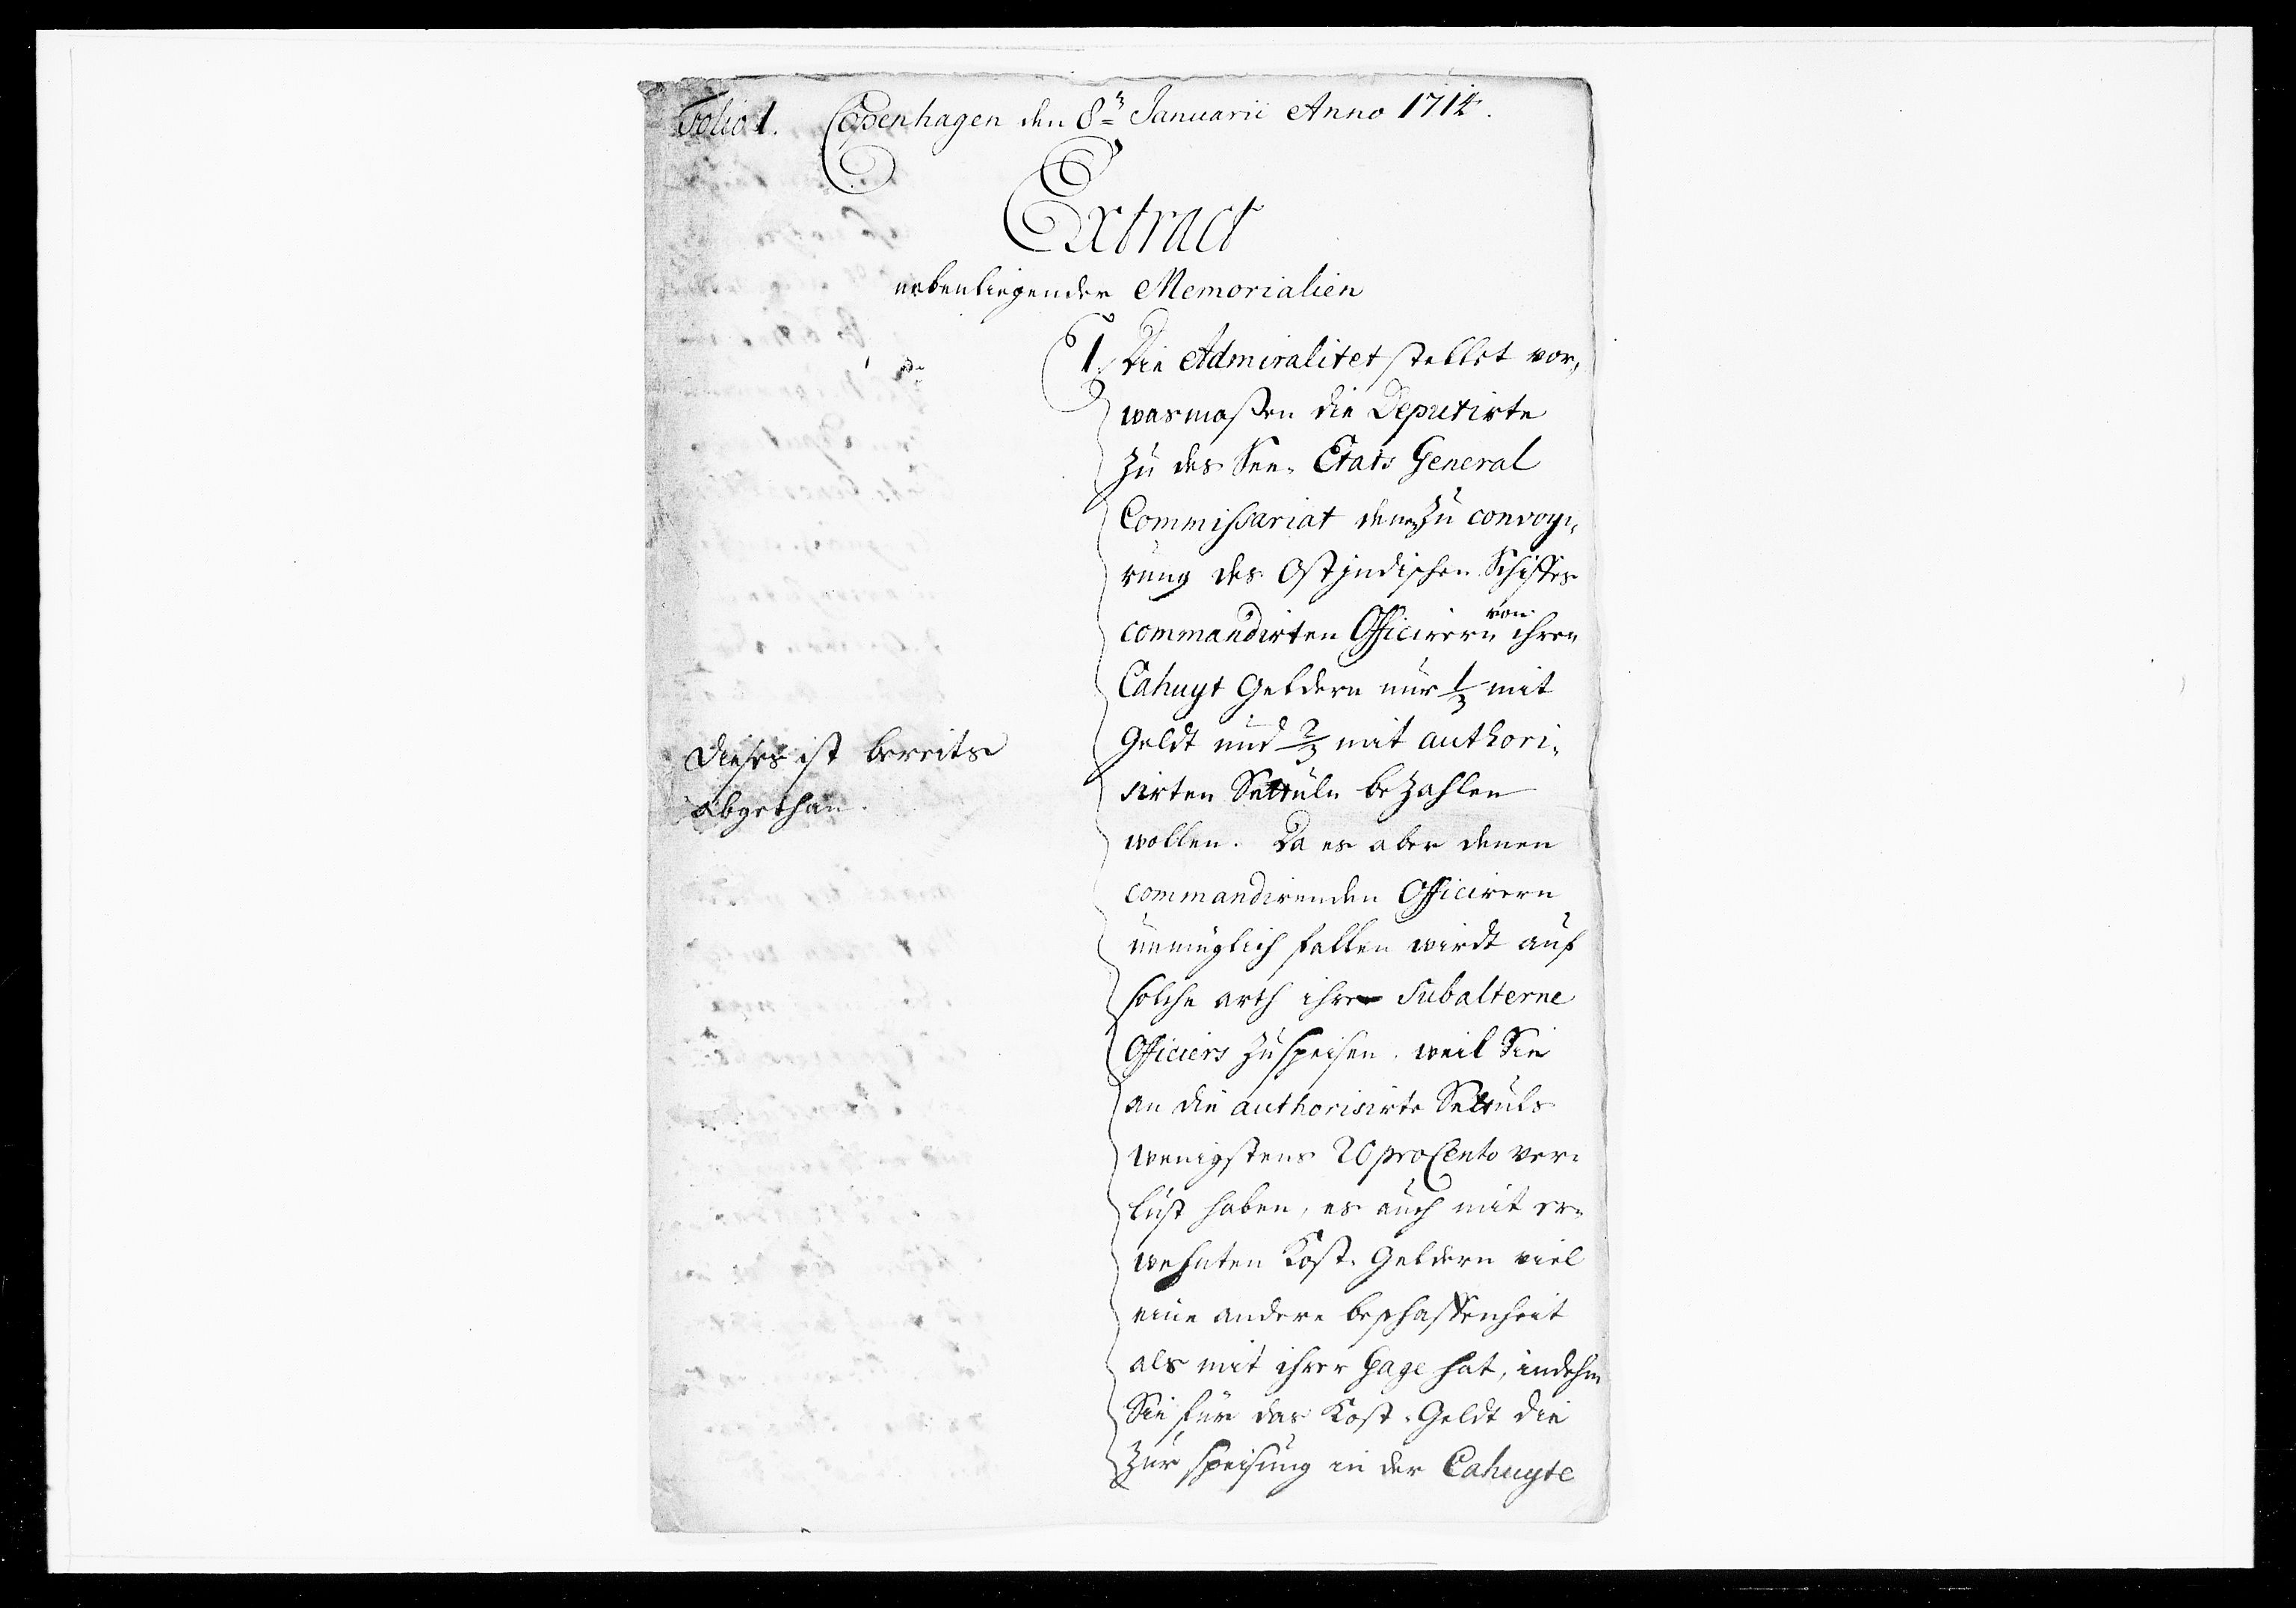 Folio 1. Copenhagen den 8ten Januarii Anno 1714.
Extract
nebenliegender Memorialien
1. Die Admiralitet stellet vor,
wasmaßen die Deputirte
zu des See- Etats General
Commissariat denen zu convoyi-
rung des Ostjndischen Schiffes
commandirten Officirern von ihren
Cahuyt Geldern nur 1/3 mit
Geldt und 2/3 mit authori-
sirten Settuln bezahlen
wollen. Da es aber denen
commandirenden Officirern
unmüglich fallen wirdt auf
solche arth ihre Subalterne
Officiers zu speisen, weil Sie
an die authorisirte Settuls
wenigstens 20 pro Cento ver-
lust haben, es auch mit er-
wehnten Kost-Geldern viel
eine andere beschaffenheit
als mit ihrer Gage hat, indehm
Sie für das Kost-Geldt die
zur speisung in der Cahuyte
Dieses ist bereits
abgethan.